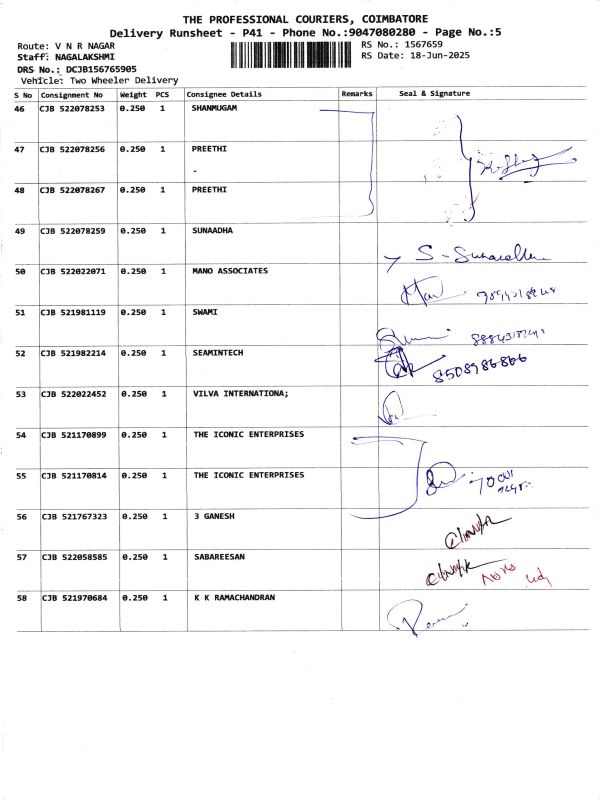 THE PROFESSIONAL COURIERS, COIMBATORE
Delivery Runsheet - P41 - Phone No.:9047080280 - Page No.:5
Route: V N R NAGAR
RS No.: 1567659
Staff: NAGALAKSHMI
RS Date: 18-Jun-2025
DRS No.: DCJB156765905
Vehicle: Two Wheeler Delivery
S No Consignment No Weight PCS Consignee Details Remarks Seal & Signature
46 CJB 522078253 0.250 1 SHANMUGAM
47 CJB 522078256 0.250 1 PREETHI
-
48 CJB 522078267 0.250 1 PREETHI
49 CJB 522078259 0.250 1 SUNAADHA
S-
50 CJB 522022071 0.250 1 MANO ASSOCIATES
51 CJB 521981119 0.250 1 SWAMI
52 CJB 521982214 0.250 1 SEAMINTECH
8508986866
53 CJB 522022452 0.250 1 VILVA INTERNATIONA;
54 CJB 521170899 0.250 1 THE ICONIC ENTERPRISES
55 CJB 521170814 0.250 1 THE ICONIC ENTERPRISES
56 CJB 521767323 0.250 1 3 GANESH
57 CJB 522058585 0.250 1 SABAREESAN
58 CJB 521970684 0.250 1 K K RAMACHANDRAN